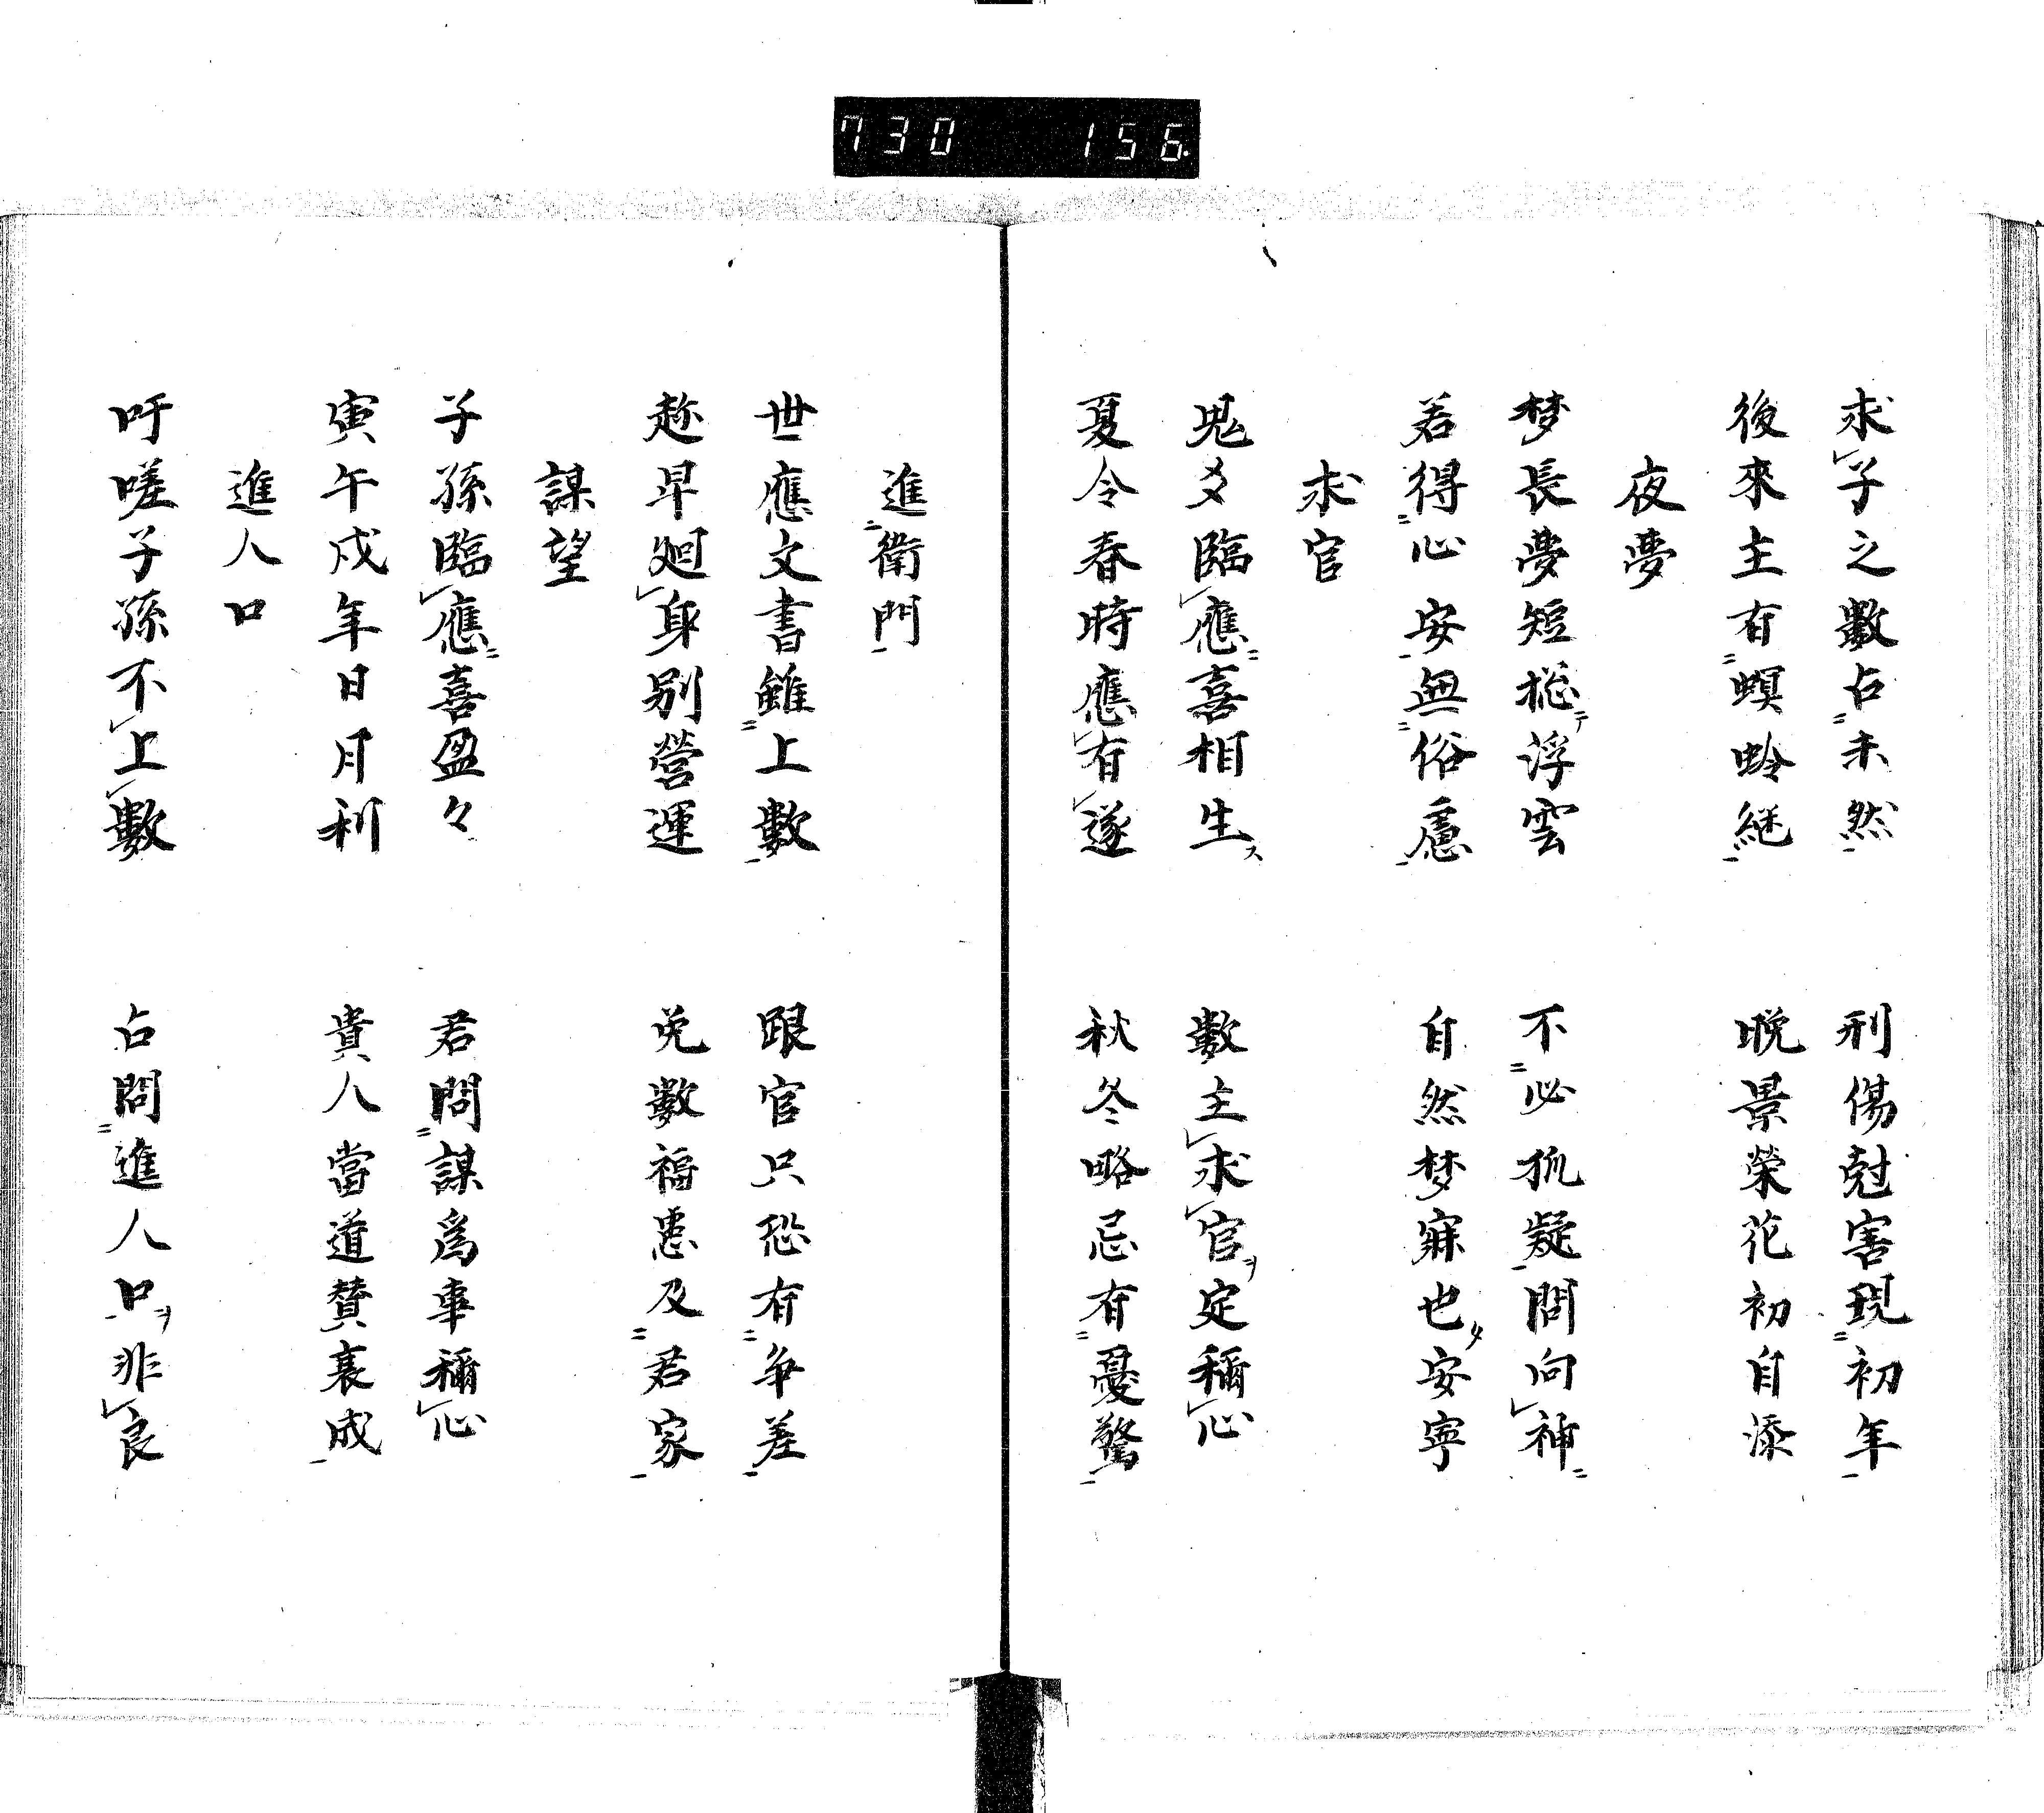 730 156
求子之數占未然 刑傷尅害現初年
後來主有螟蛉継 晩景榮花初自添
夜夢
梦長夢短摠浮雲 不必狐疑問向神
若得心安無俗慮 自然梦寐也安寧
求官
鬼爻臨應喜相生 數主求官定稱心
夏令春時應有遂 秋冬略忌有憂驚
進衛門
世應文書雖上數 跟官只恐有争差
趂早廻身別營運 免數福患及君家
謀望
子孫臨應喜盈々 君問謀爲事稱心
寅午戍年日月利 貴人當道賛襄成
進人口
吁嗟子孫不上數 占問進人口非良